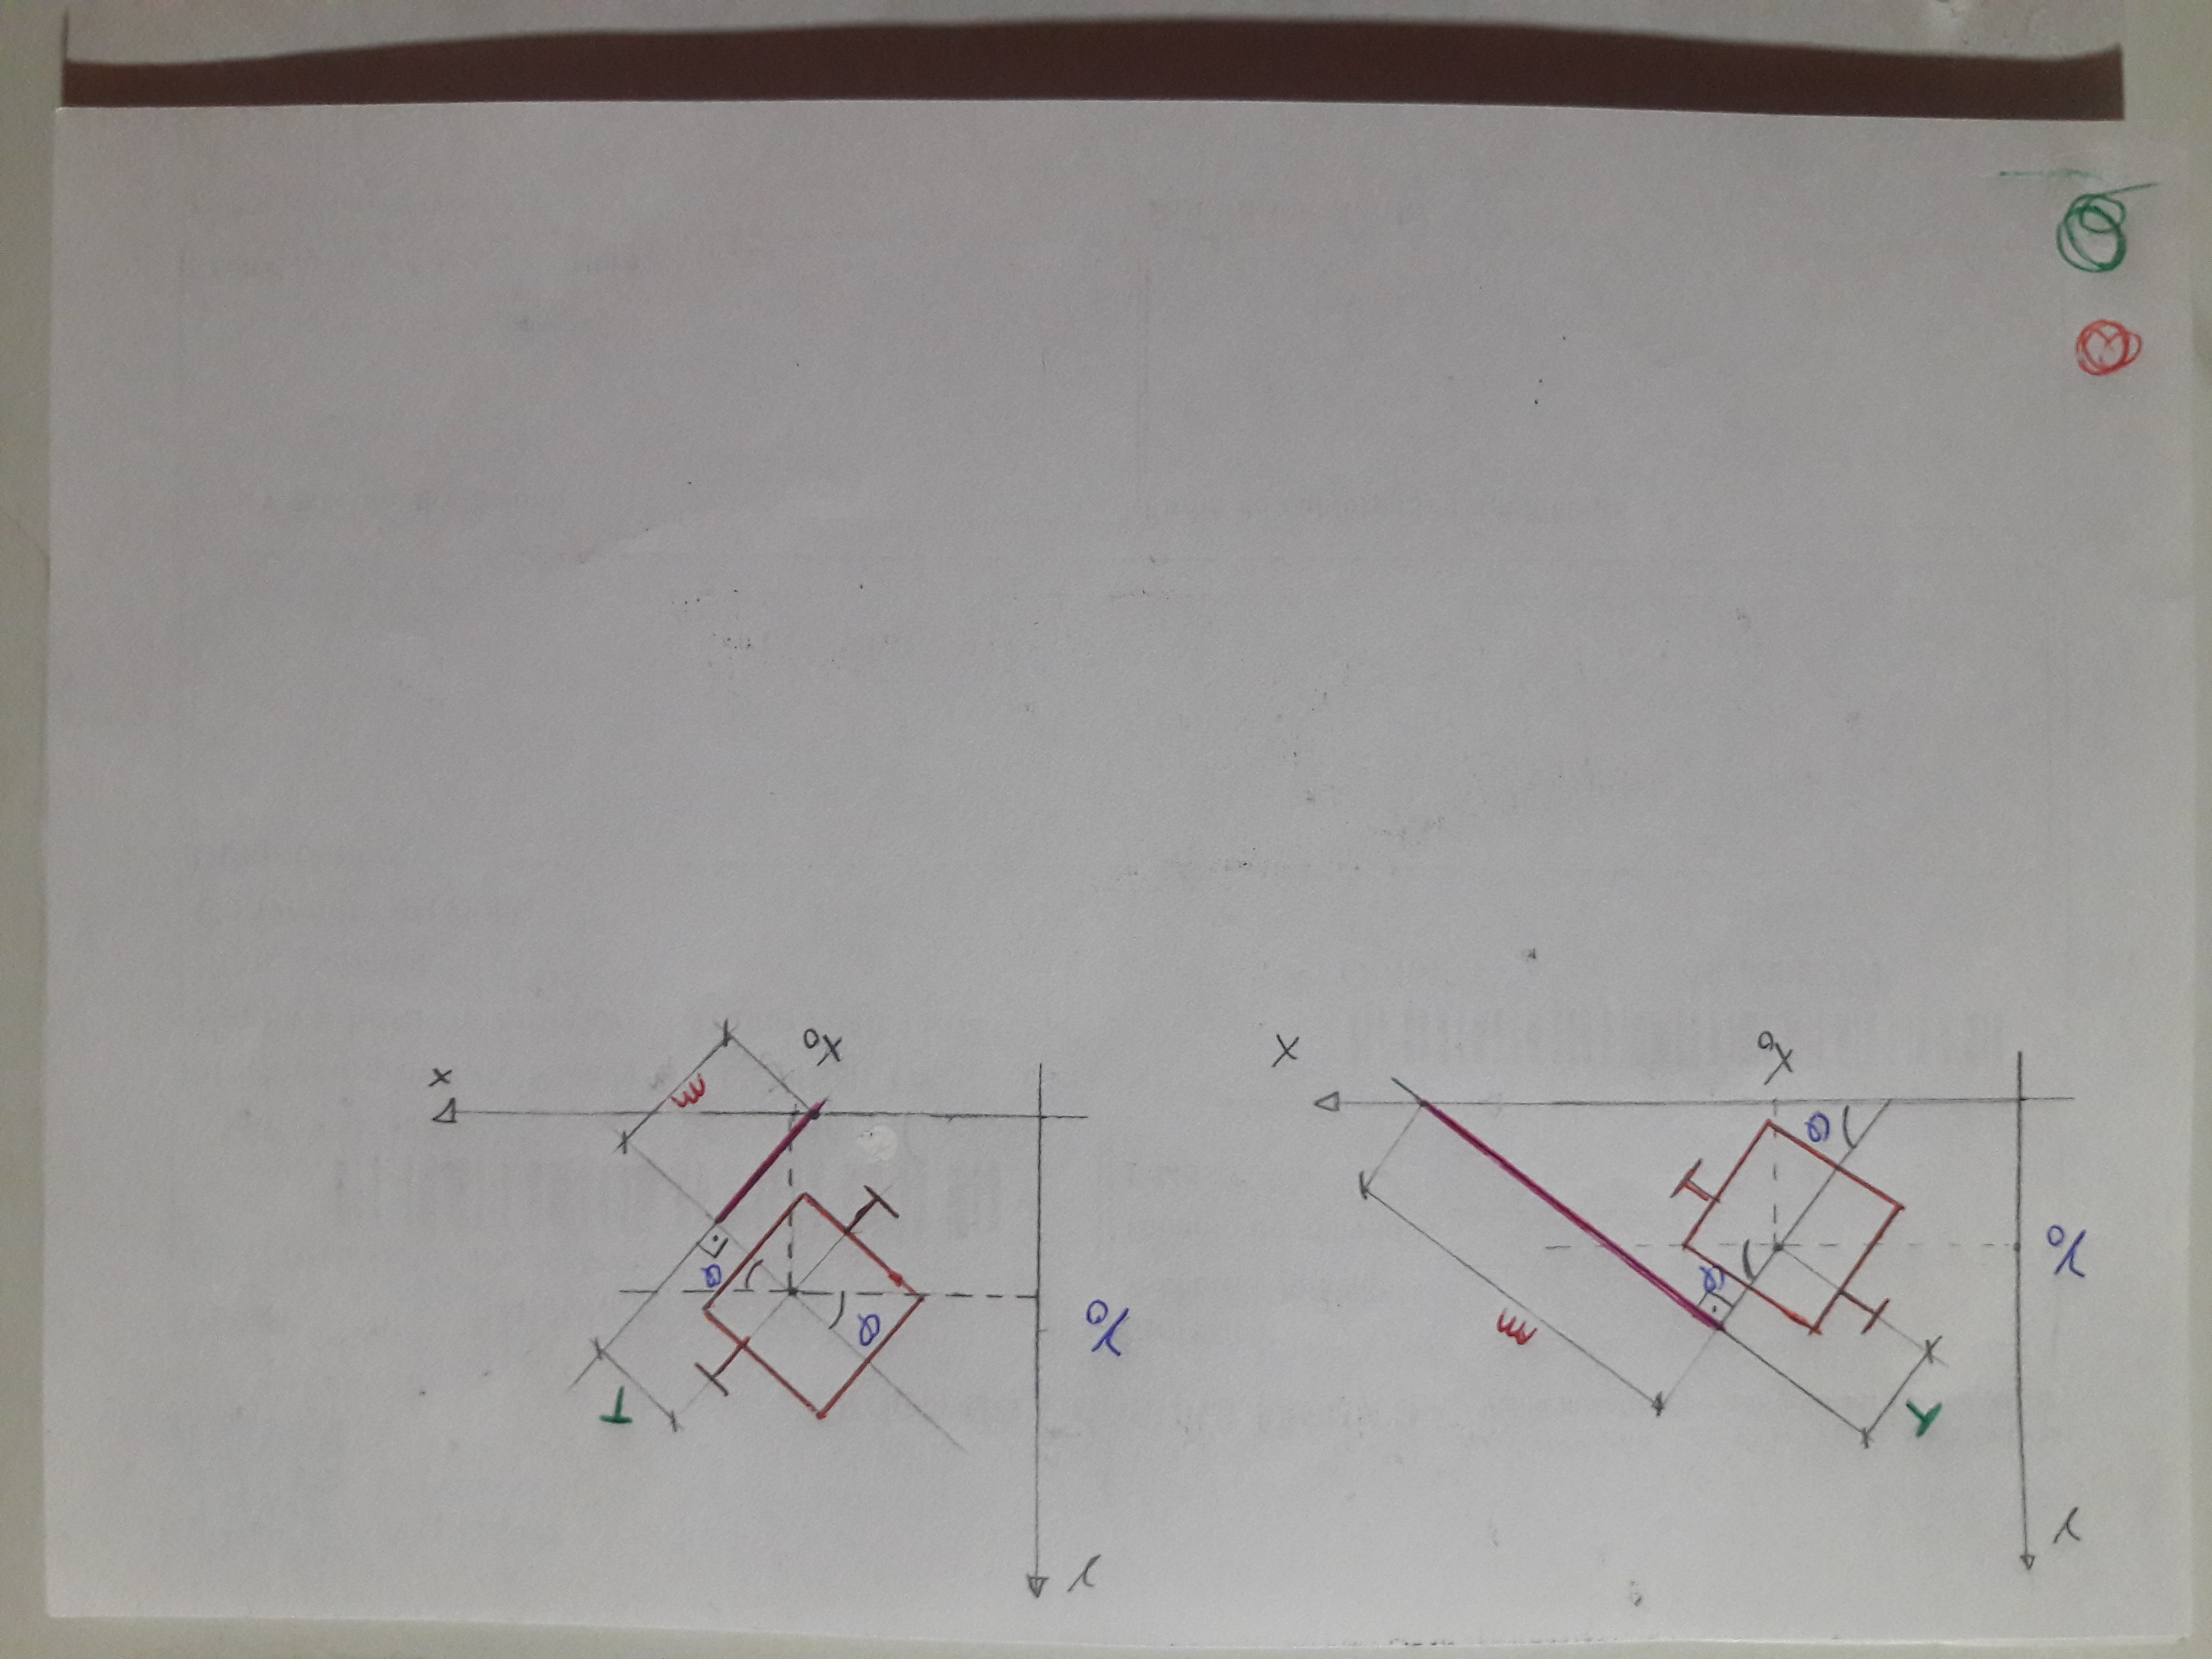 y
T
m
y₀
Q
Q
x₀
x
y
T
y₀
Q
Q
m
x₀
x